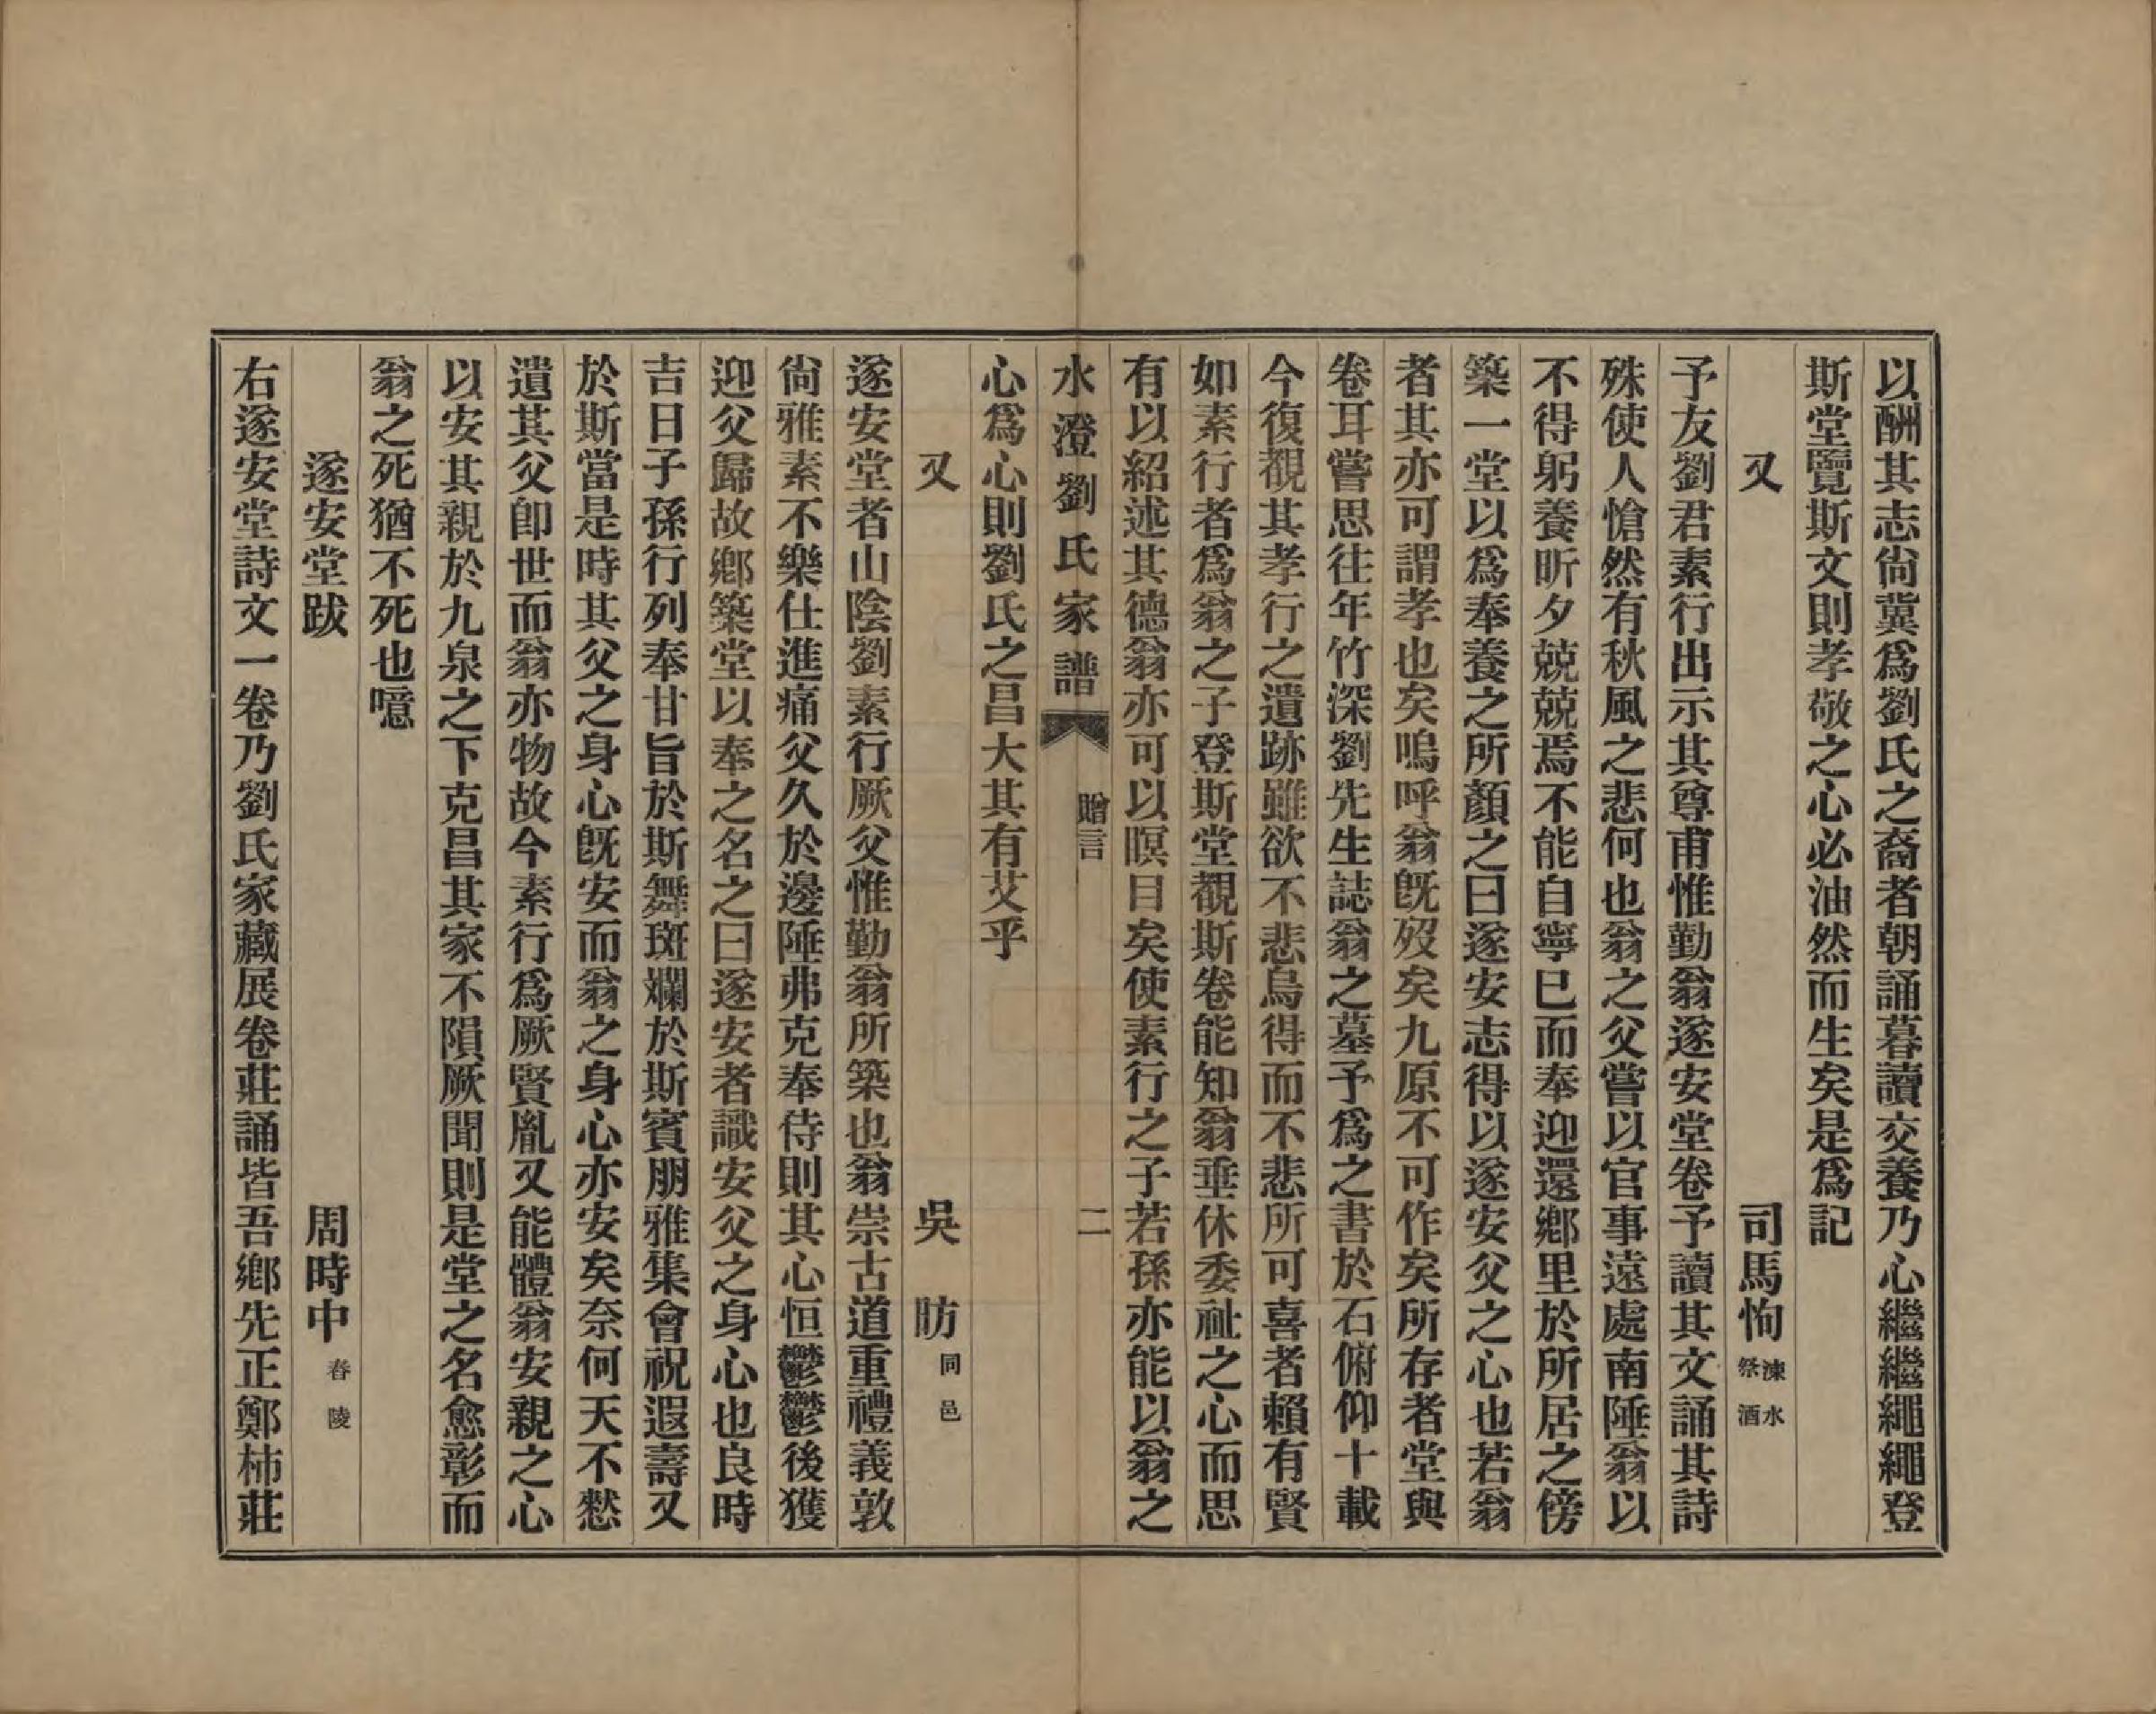 以酬其志尙冀爲劉氏之裔者朝誦暮讀交養乃心繼繼繩繩登
斯堂覽斯文則孝敬之心必油然而生矣是爲記
又 司馬恂 涑水祭酒
予友劉君素行出示其尊甫惟勤翁遂安堂卷予讀其文誦其詩
殊使人愴然有秋風之悲何也翁之父嘗以官事遠處南陲翁以
不得躬養昕夕兢兢焉不能自寧已而奉迎還鄕里於所居之傍
築一堂以爲奉養之所顏之曰遂安志得以遂安父之心也若翁
者其亦可謂孝也矣嗚呼翁旣歿矣九原不可作矣所存者堂與
卷耳嘗思往年竹深劉先生誌翁之墓予爲之書於石俯仰十載
今復覩其孝行之遺跡雖欲不悲烏得而不悲所可喜者賴有賢
如素行者爲翁之子登斯堂覩斯卷能知翁垂休委祉之心而思
有以紹述其德翁亦可以瞑目矣使素行之子若孫亦能以翁之
水澄劉氏家譜 贈言 二
心爲心則劉氏之昌大其有艾乎
又 吳昉 同邑
遂安堂者山陰劉素行厥父惟勤翁所築也翁崇古道重禮義敦
尙雅素不樂仕進痛父久於邊陲弗克奉侍則其心恒鬱鬱後獲
迎父歸故鄕築堂以奉之名之曰遂安者識安父之身心也良時
吉日子孫行列奉甘旨於斯舞斑斕於斯賓朋雅集會祝遐壽又
於斯當是時其父之身心旣安而翁之身心亦安矣奈何天不憖
遺其父卽世而翁亦物故今素行爲厥賢胤又能體翁安親之心
以安其親於九泉之下克昌其家不隕厥聞則是堂之名愈彰而
翁之死猶不死也噫
遂安堂跋 周時中 春陵
右遂安堂詩文一卷乃劉氏家藏展卷莊誦皆吾鄕先正鄭柿莊